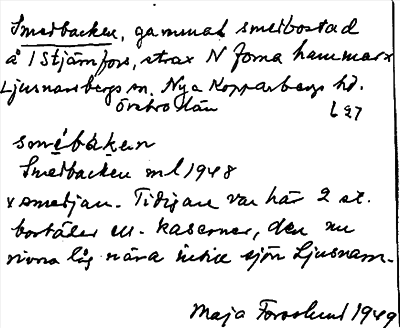 Smedbacken, gammal smedbostad
å 1 Stjärnfors, strax N forna hammarx
Ljusnarsbergs sn. Nya Kopparbergs hd.
Örebro län
smébàken
Smedbacken ml 1948
x smedjan. Tidigare var här 2 st.
bostäder el. kaserner, den nu
rivna låg nära intill sjön Ljusnarn.
Maja Forslund 1949